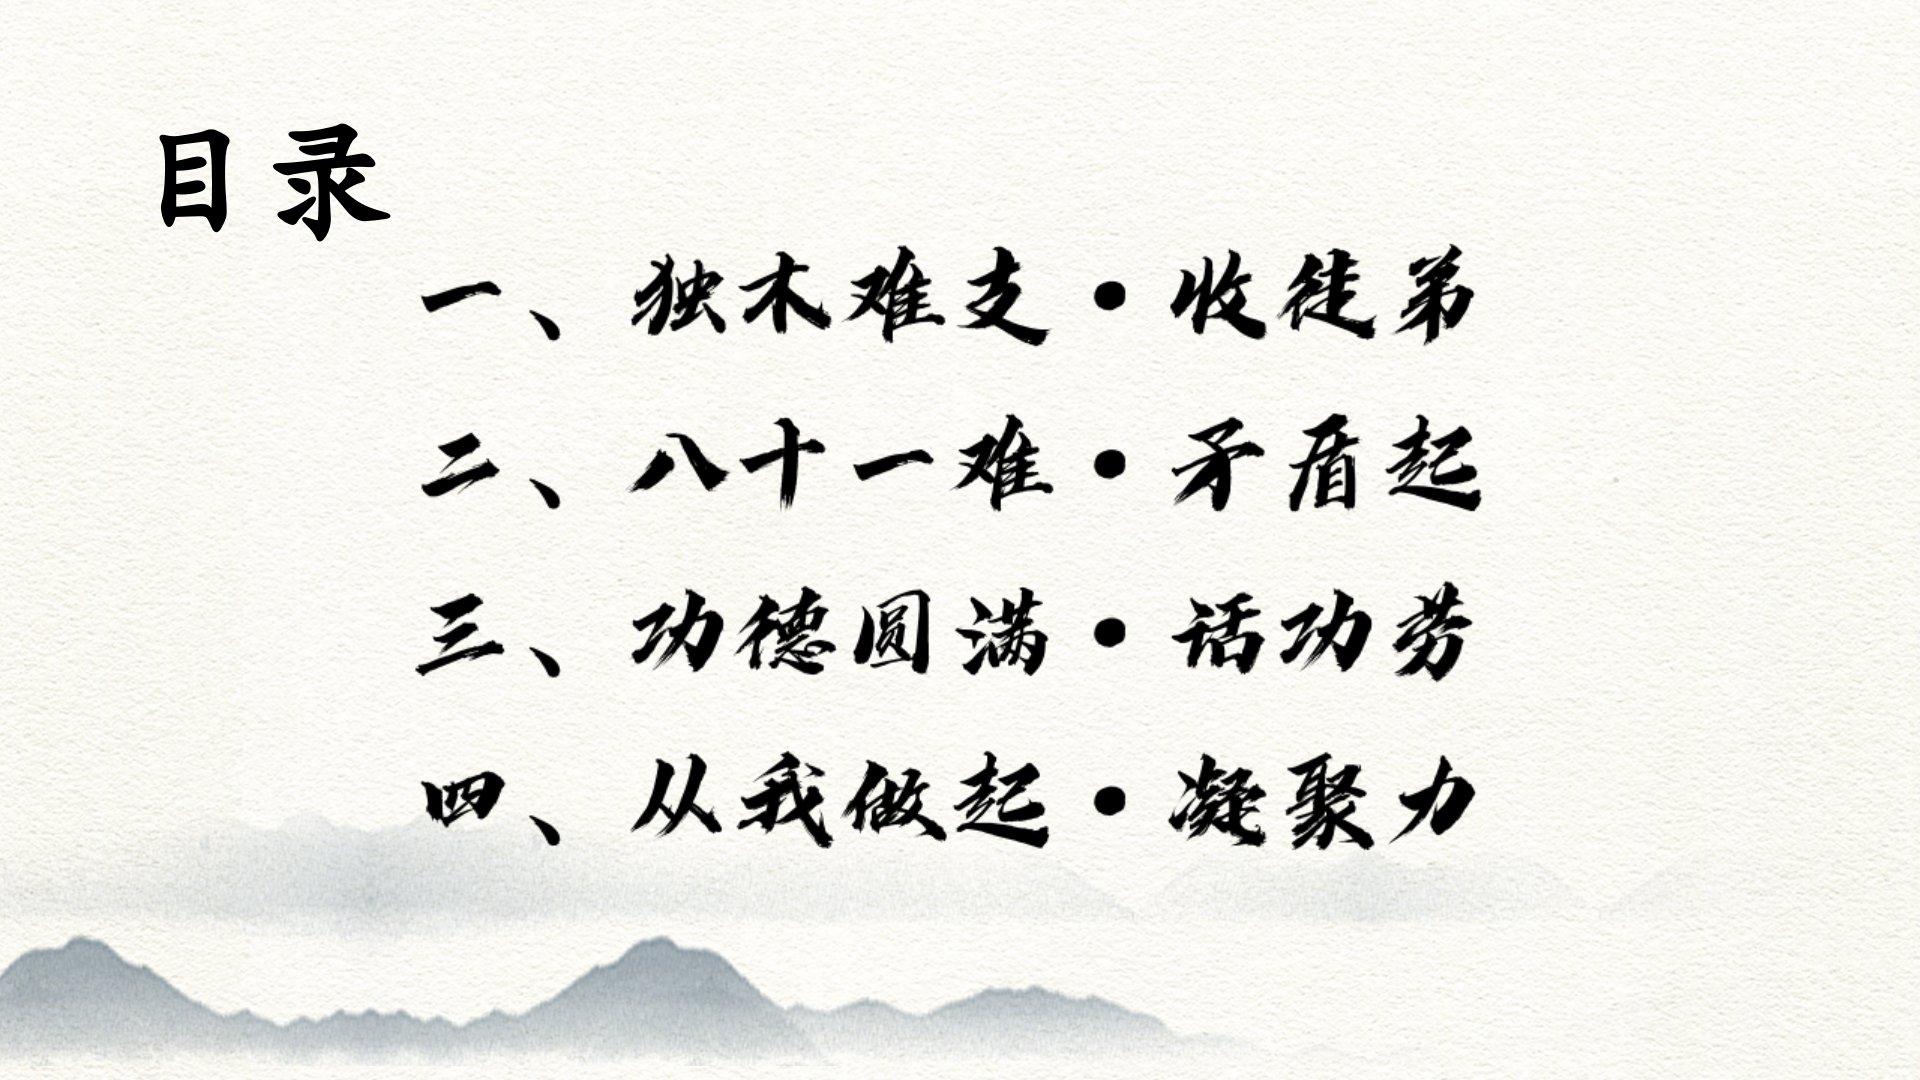 目录
一、独木难支·收徒弟
二、八十一难·矛盾起
三、功德圆满·话功劳
四、从我做起·凝聚力